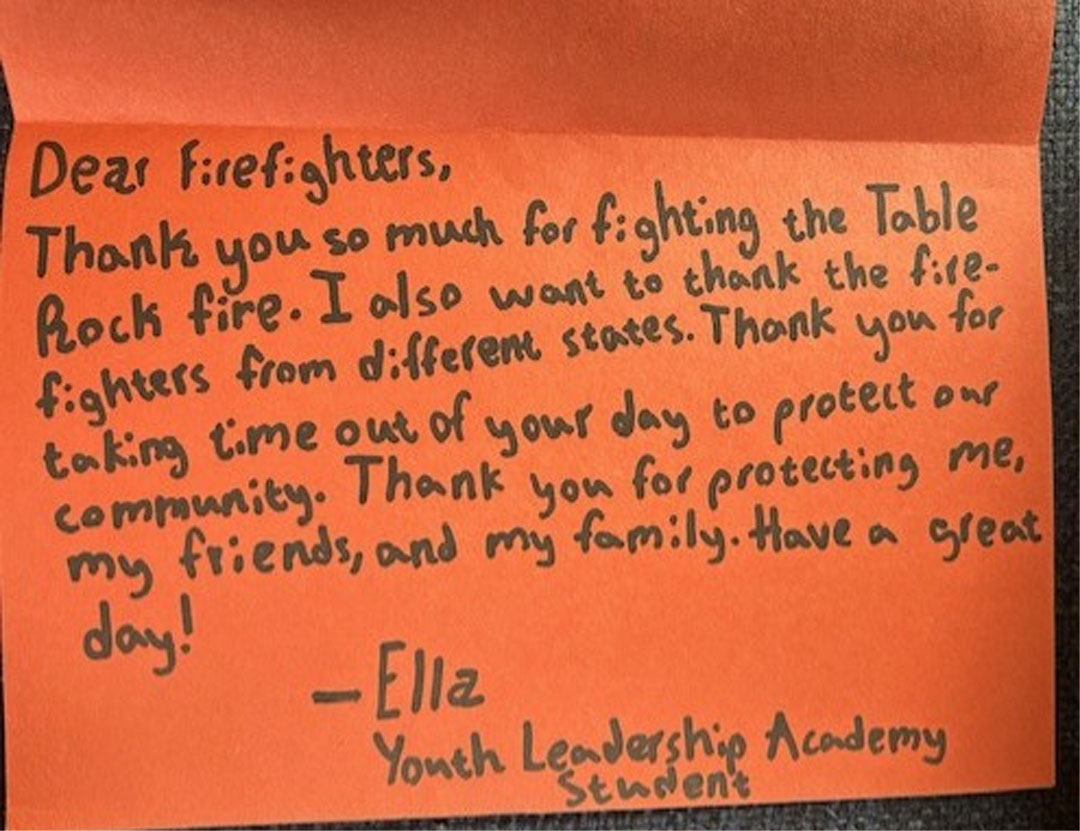 Dear Firefighters,
Thank you so much for fighting the Table
Rock fire. I also want to thank the fire-
fighters from different states. Thank you for
taking time out of your day to protect our
community. Thank you for protecting me,
my friends, and my family. Have a great
day!
— Ella
Youth Leadership Academy
Student